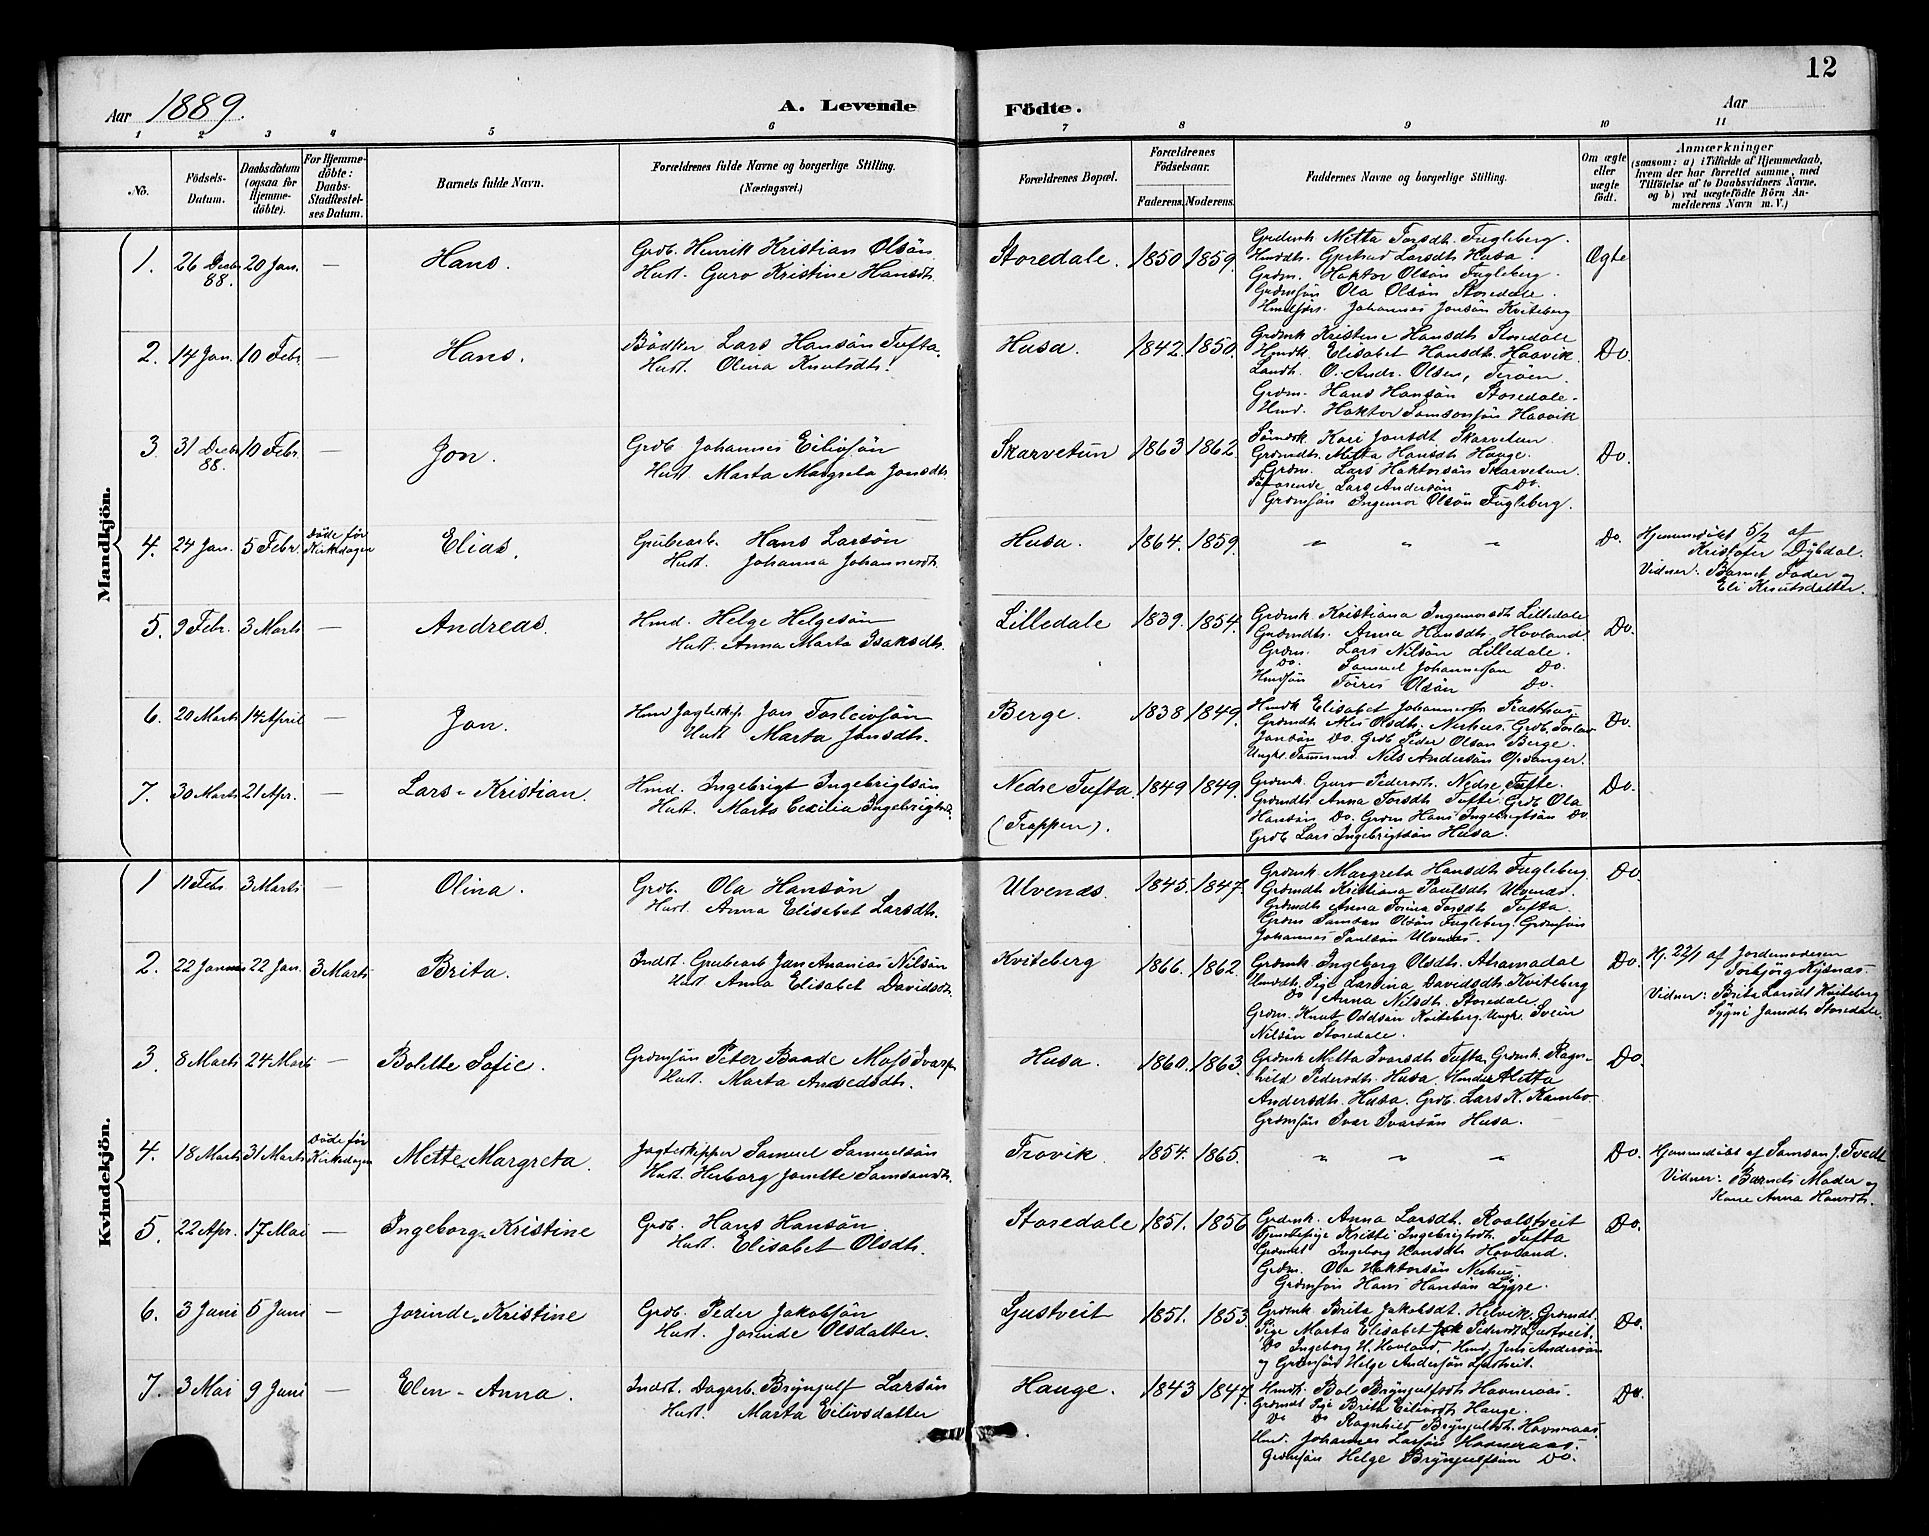 12
Aar 1889.
A. Levende
Födte.
Aar
1 2 3 4 5 6 7 8 9 10 11
No.
Födsels-
Datum.
Daabsdatum
(ogsaa for
Hjemme-
döbte).
For Hjemme-
döbte:
Daabs-
Stadfæstel-
ses Datum.
Barnets fulde Navn.
Forældrenes fulde Navne og borgerlige Stilling.
(Næringsvei.)
Forældrenes Bopæl.
Forældrenes
Födselsaar.
Faderens. Moderens.
Faddernes Navne og borgerlige Stilling.
Om ægte
eller
uægte
födt.
Anmærkninger
(saasom: a) i Tilfælde af Hjemmedaab,
hvem der har forrettet samme, med
Tilföielse af to Daabsvidners Navne.
og b) ved uægtefödte Börn An-
melderens Navn m. V.)
Mandkjön.
1. 26 Decbr 88. 20 Jan. — Hans.
Grdb. Henrik Kristian Olsön
Hust. Guro Kristine Hansdtr.
Storedale. 1850 1859.
Grdmk. Mitta Torsdtr. Fugleberg.
Hmddtr. Gjertrud Larsdtr Husa.
Grdm. Haktor Olsön Fugleberg.
Grdmsön Ola Olsön Storedale.
Hmdsön. Johannes Jonsön Kviteberg
Ægte
2. 14 Jan. 10 Febr. — Hans.
Bödker Lars Hansön Tufta.
Hust. Olina Knutsdtr.
Husa. 1842. 1850.
Grdmk Kristine Hansdtr Storedale
Hmdk. Elisabet Hansdtr. Haavik.
Landh. O. Andr. Olsen, Teröen.
Grdm. Hans Hansön Storedale.
Hmd. Haktor Samsonsön Haavik
Do.
3. 31 Decbr 88. 10 Febr. — Jon.
Grdb Johannes Eilivsön
Hust. Marta Margreta Jonsdtr.
Skarvetun 1863 1862.
Kari Jonsdt. Skarvetun.
Grdmdtr. Mitta Hansdtr Hauge.
Grdm. Lars Haktorsön Skarvetun.
Lars Andersön Do.
Grdmsön Ingemor Olsön Fugleberg.
Do.
4. 24 Jan. 5 Febr. Döde før Kirkedagen Elias.
Grubearb. Hans Larsön
Hust. Johanna Johannesdtr.
Husa. 1864. 1859.
" " "
Do.
Hjemmedöbt 5/2 af
Kristofer Dybdal.
Vidner: Barnets Fader og
Eli Knutsdatter.
5. 9 Febr. 3 Marts — Andreas.
Hmd. Helge Helgesön
Hust. Anna Marta Isaksdtr.
Lilledale 1839. 1854.
Grdmk. Kristiana Ingemorsdtr Lilledale
Grdmdtr. Anna Hansdtr. Hovland.
Grdm. Lars Nilsön Lilledale.
Do. Samuel Johannessön Do.
Hmdsön Torris Olsön Do.
Do.
6. 20 Marts 14 April — Jon.
Hmd Jagteskip. Jon Torleivsön
Hust Marta Jonsdtr.
Berge. 1838 1849.
Hmdk Elisabet Johannesdtr Prasthus.
Grdmdtr Ales Olsdtr. Nerhus. Grdb. Torleiv
Jonsön Do. Grdb Peder Olson Berge.
Ungk. Tømmermd. Nils Andersön Opsanger.
Do.
7. 30 Marts 21 Apr. — Lars-Kristian.
Hmd. Ingebrigt Ingebrigtsön
Hust. Marta Cecilia Ingebrigtsdtr.
Nedre Tufta.
(Trappen).
1849 1849.
Grdmk. Guro Pedersdtr. Nedre Tufte.
Grdmdtr Anna Torsdtr Tufte. Grdb Ola
Hansön Do. Grdm Hans Ingebrigtsön Do
Grdb Lars Ingebrigtsön Husa.
Do.
Kvindekjön.
1 11 Febr. 3 Marts — Olina.
Grdb. Ola Hansön
Hust. Anna Elisabet Larsdtr.
Ulvenæs. 1845. 1847.
Grdmk. Margreta Hansdtr Fugleberg.
Grdmdtr Kristiana Paulsdtr Ulvenæs.
Grdmdtr Anna Torina Torsdtr. Tufta.
Grdm Samson Olsön Fugleberg. Grdmsön
Johannes Paulsön Ulvenæs.
Do.
2. 22 Januar 22 Jan. 3 Marts Brita.
Indst. Grubearb Jan Ananias Nilsön
Hust Anna Elisabet Davidsdtr.
Kviteberg 1866. 1862.
Grdmk. Ingeborg Olsdtr. Akramadal
Hmddtr. Pige Larsina Davidsdtr. Kviteberg
Do Anna Nilsdtr. Storedale.
Grdm. Knut Oddsön Kviteberg. Ungk. Svein
Nilsön Storedale.
Do.
Hj. 22/1 af Jordemoderen
Torbjörg Kysnæs.
Vidner: Brita Larsdt Kviteberg
Sygni Jansdtr Storedale.
3. 8 Marts 24 Marts — Bolette Sofie.
Grdmsön Peter Baade Mojs Ivarsön
Hust. Marta Andersdtr.
Husa. 1860. 1863.
Grdmk Mitta Ivarsdtr Tufta, Grdmk. Ragn-
hild Pedersdtr. Husa. Hmddtr Mitta
Andersdtr. Husa. Grdb. Lars K. Kambo
Grdmsön Ivar Ivarsön Husa.
Do.
4. 18 Marts 31 Marts Döde før Kirkedagen Mette-Margreta.
Jagteskipper Samuel Samuelsön
Hust. Herborg Janette Samsonsdtr.
Trovik. 1854. 1865.
" " "
Do.
Hjemmedöbt af Samson J. Tvedt
Vidner: Barnets Moder og
Kone Anna Hansdtr.
5. 22 Apr. 17 Mai — Ingeborg-Kristine
Grdb. Hans Hansön
Hust. Elisabet Olsdtr.
Storedale 1851. 1856
Grdmk. Anna Larsdt. Roalstveit
Tjenstepige Kristi Ingebrigtsdtr. Tufta
Grdmdt Ingeborg Hansdtr Hovland.
Grdm. Ola Haktorsön Nerhus.
Grdmsön Hans Hansön Lygre.
Do.
6. 3 Juni 5 Juni — Jorinde-Kristine
Grdb. Peder Jakobsön
Hust. Jorinde Olsdatter.
Ljustveit 1851. 1853.
Grdmk Brita Jakobsdt. Helvik, Grdmdt.
Pige Marta Elisabet Pedersdt Ljustveit.
Do Ingeborg H. Hovland, Hmd. Jens Andersön
og Grdmsön Helge Andersön Ljustveit.
Do.
7. 3 Mai 9 Juni — Elen-Anna.
Indst. Dagarb. Brynjulf Larsön
Hust. Marta Eilivsdatter
Hauge. 1843 1847.
Hmdk. Bol Brynjulfsdtr Havneraas.
Grdmdt Pige Brita Eilivsdtr Hauge.
Do Do Ragnhild Brynjulfsdtr. Havneraas
Hmd. Johannes Larsön Havneraas.
Grdmsön Helge Brynjulfsön Do.
Do.